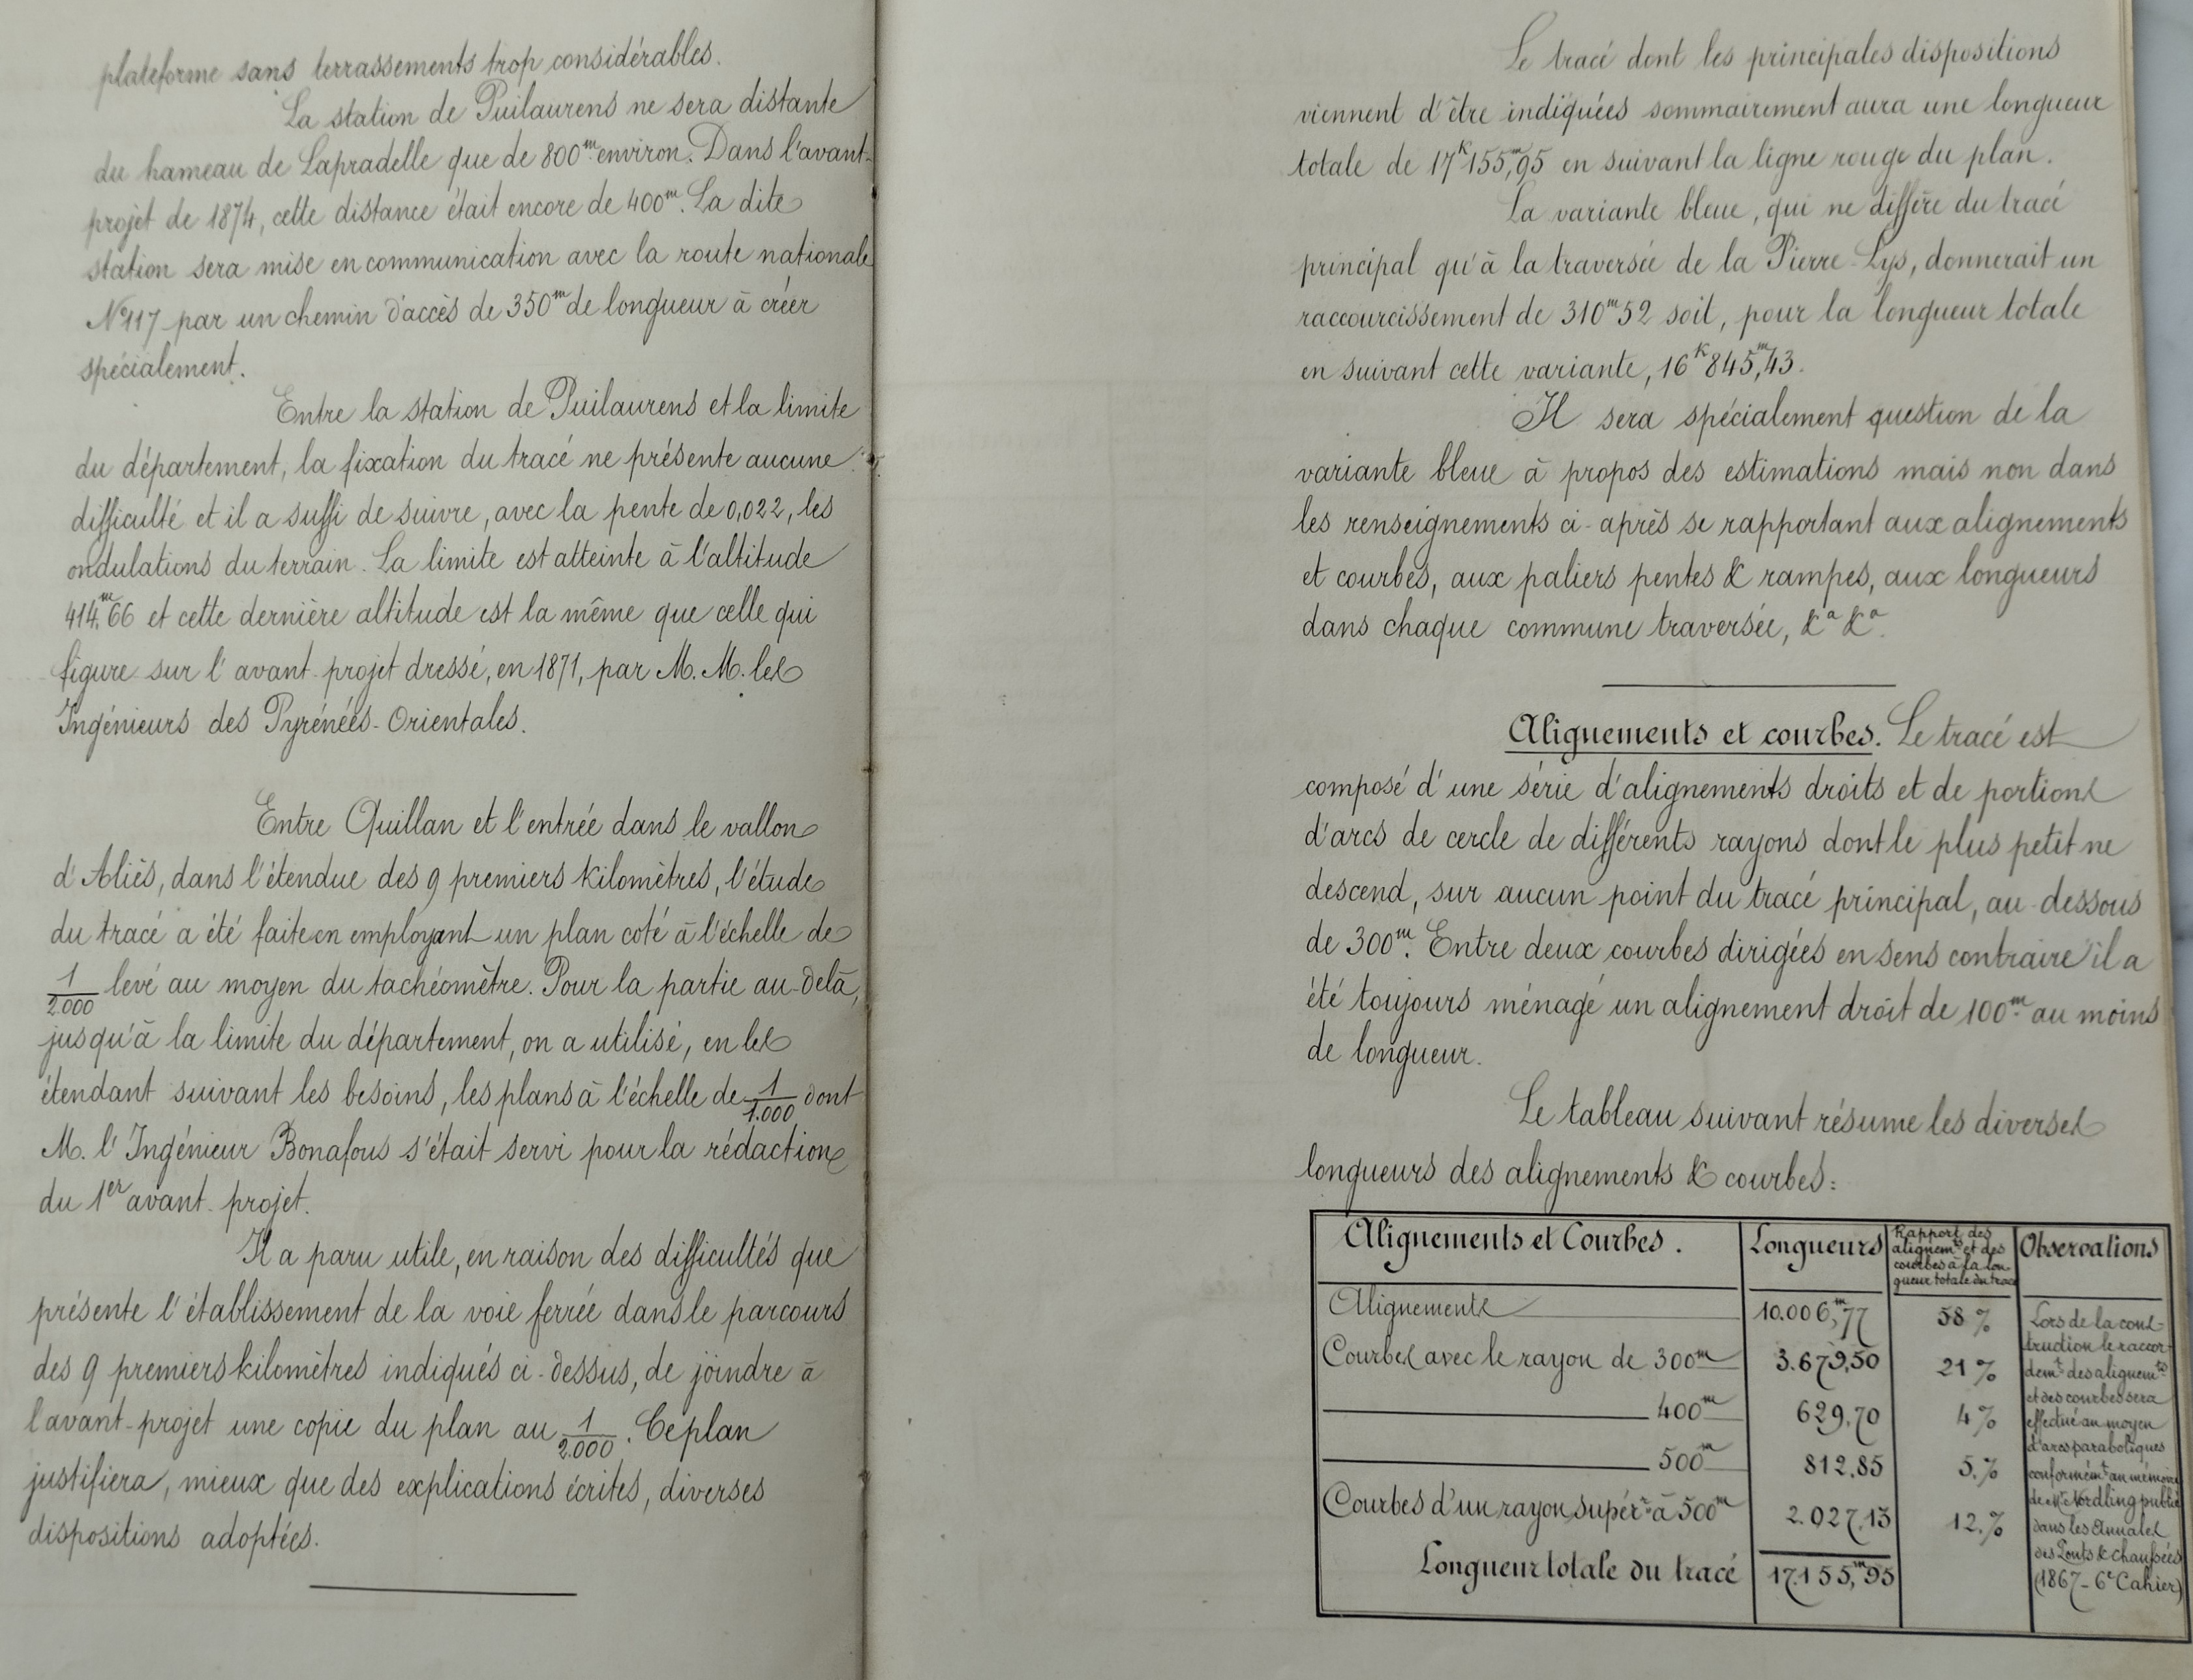 plateforme sans terrassements trop considérables.
La station de Puilaurens ne sera distante
du hameau de Lapradelle que de 800m environ. Dans l'avant-
projet de 1874, cette distance était encore de 400m. La dite
station sera mise en communication avec la route nationale
N°117 par un chemin d'accès de 350m de longueur à créer
spécialement.
Entre la station de Puilaurens et la limite
du département, la fixation du tracé ne présente aucune
difficulté et il a suffi de suivre, avec la pente de 0,022, les
ondulations du terrain. La limite est atteinte à l'altitude
414m,66 et cette dernière altitude est la même que celle qui
figure sur l'avant-projet dressé, en 1871, par M. M. les
Ingénieurs des Pyrénées-Orientales.
Entre Quillan et l'entrée dans le vallon
d'Aliès, dans l'étendue des 9 premiers kilomètres, l'étude
du tracé a été faite en employant un plan coté à l'échelle de
1/2.000 levé au moyen du tachéomètre. Pour la partie au-delà,
jusqu'à la limite du département, on a utilisé, en les
étendant suivant les besoins, les plans à l'échelle de 1/1.000 dont
M. l'Ingénieur Bonafous s'était servi pour la rédaction
du 1er avant-projet.
Il a paru utile, en raison des difficultés que
présente l'établissement de la voie ferrée dans le parcours
des 9 premiers kilomètres indiqués ci-dessus, de joindre à
l'avant-projet une copie du plan au 1/2.000. Ce plan
justifiera, mieux que des explications écrites, diverses
dispositions adoptées.
Le tracé dont les principales dispositions
viennent d'être indiquées sommairement aura une longueur
totale de 17k155m,95 en suivant la ligne rouge du plan.
La variante bleue, qui ne diffère du tracé
principal qu'à la traversée de la Pierre-Lys, donnerait un
raccourcissement de 310m52 soit, pour la longueur totale
en suivant cette variante, 16k845m,43.
Il sera spécialement question de la
variante bleue à propos des estimations mais non dans
les renseignements ci-après se rapportant aux alignements
et courbes, aux paliers pentes & rampes, aux longueurs
dans chaque commune traversée, &a &a.
Alignements et courbes. Le tracé est
composé d'une série d'alignements droits et de portions
d'arcs de cercle de différents rayons dont le plus petit ne
descend, sur aucun point du tracé principal, au-dessous
de 300m. Entre deux courbes dirigées en sens contraire il a
été toujours ménagé un alignement droit de 100m au moins
de longueur.
Le tableau suivant résume les diverses
longueurs des alignements & courbes:
Alignements et Courbes. Longueurs Rapport des alignemts et des courbes à la longueur totale du tracé Observations
Alignements 10.006m,77 58%
Courbes avec le rayon de 300m 3.679,50 21%
400m 629,70 4%
500m 812,85 5.%
Courbes d'un rayon supérr à 500m 2.027,13 12.%
Longueur totale du tracé 17.155m,95
Lors de la cons-
truction le raccor-
demt des alignemts
et des courbes sera
effectué au moyen
d'arcs paraboliques
conformémt au mémoire
de Mr Nordling publié
dans les Annales
des Ponts & chaussées
(1867 - 6e Cahier)